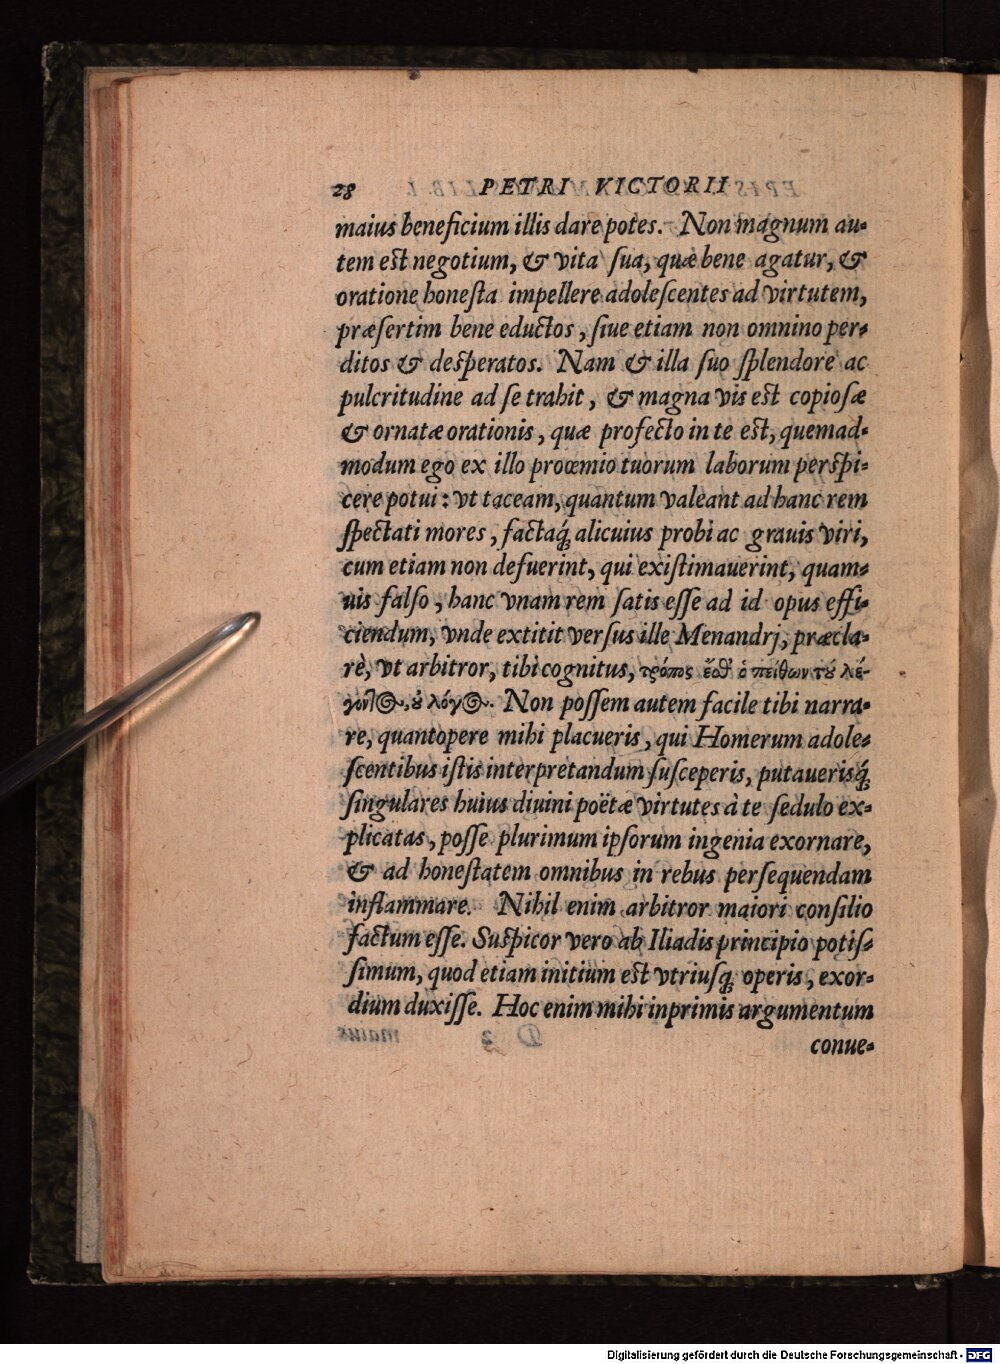 28 PETRI VICTORII
maius beneficium illis dare potes. Non magnum au-
tem est negotium, & vita sua, quæ bene agatur, &
oratione honesta impellere adolescentes ad virtutem,
præsertim bene eductos, siue etiam non omnino per-
ditos & desperatos. Nam & illa suo splendore ac
pulcritudine ad se trahit, & magna vis est copiosæ
& ornatæ orationis, quæ profecto in te est, quemad-
modum ego ex illo proœmio tuorum laborum perspi-
cere potui: vt taceam, quantum valeant ad hanc rem
spectati mores, factaq́; alicuius probi ac grauis viri,
cum etiam non defuerint, qui existimauerint, quam-
uis falso, hanc vnam rem satis esse ad id opus effi-
ciendum, vnde extitit versus ille Menandrj, præcla-
rè, vt arbitror, tibi cognitus, τρόπος ἔσθ' ὁ πείθων τοῦ λέ-
γοντος, οὐ λόγος. Non possem autem facile tibi narra-
re, quantopere mihi placueris, qui Homerum adole-
scentibus istis interpretandum susceperis, putauerisq́;
singulares huius diuini poëtæ virtutes à te sedulo ex-
plicatas, posse plurimum ipsorum ingenia exornare,
& ad honestatem omnibus in rebus persequendam
inflammare. Nihil enim arbitror maiori consilio
factum esse. Suspicor vero ab Iliadis principio potis-
simum, quod etiam initium est vtriusq; operis, exor-
dium duxisse. Hoc enim mihi inprimis argumentum
conue-
Digitalisierung gefördert durch die Deutsche Forschungsgemeinschaft - DFG